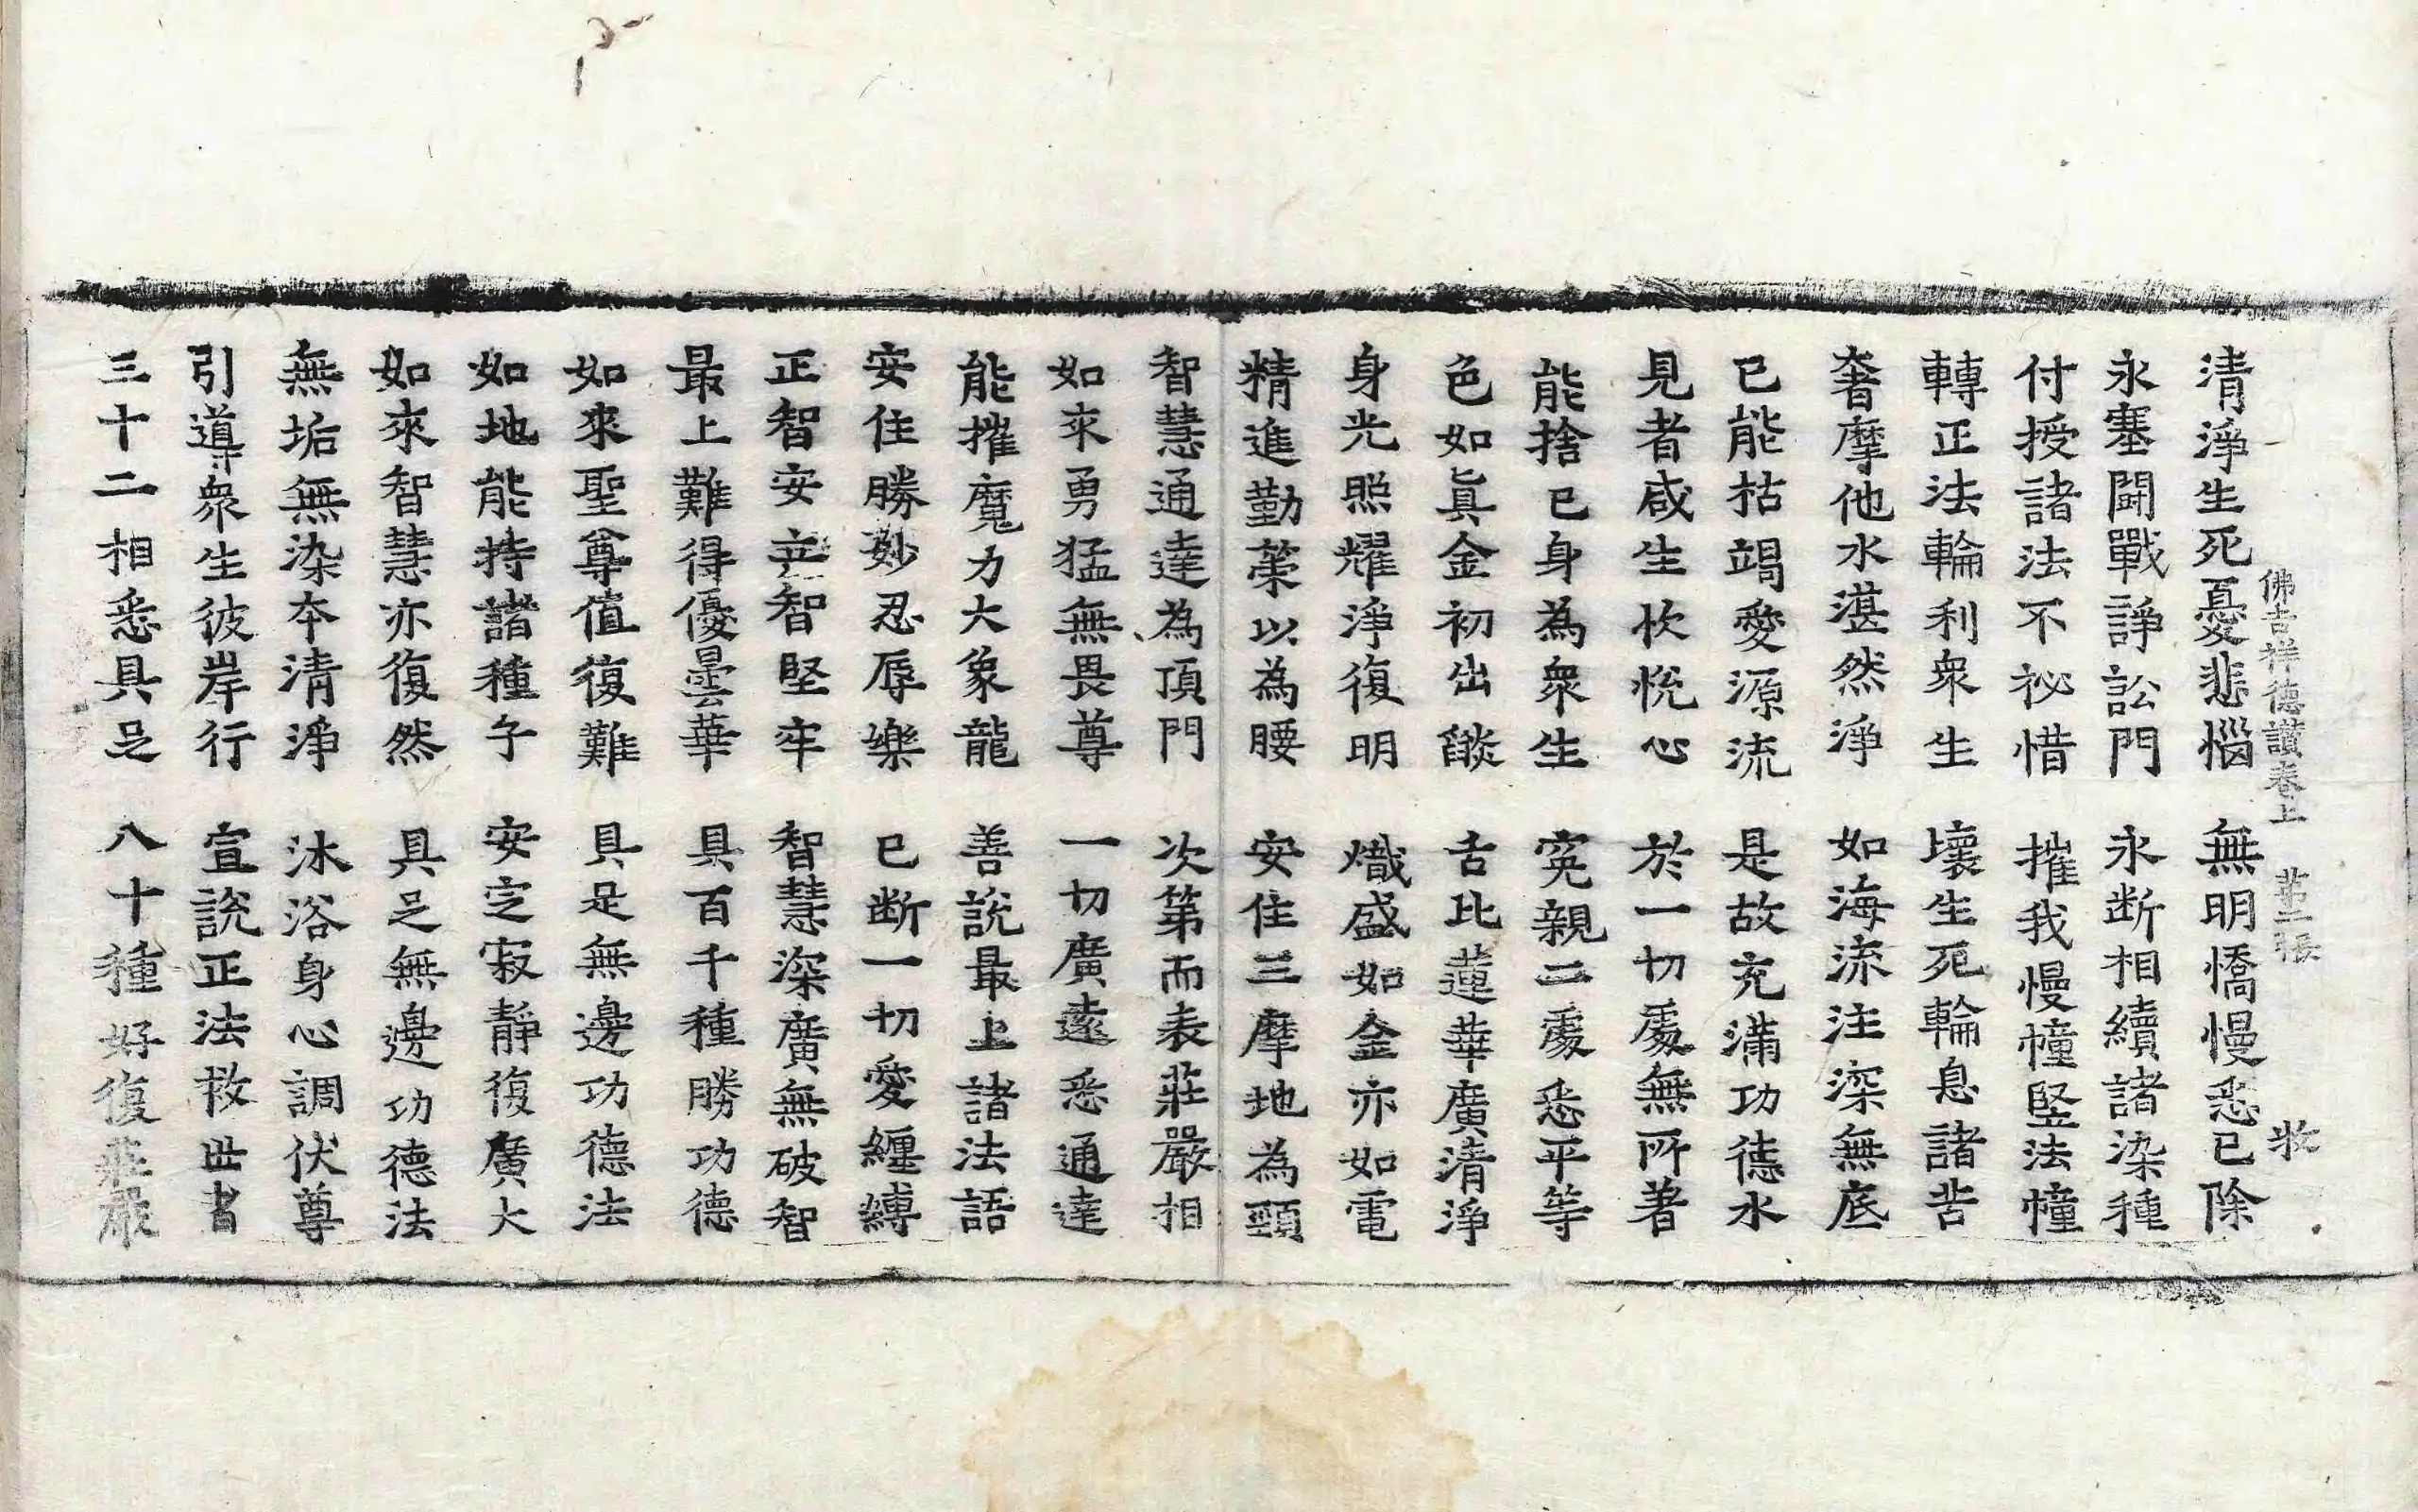 佛吉祥德讚卷上　第二張　牧
清淨生死憂悲惱　無明憍慢悉已除
永塞鬪戰諍訟門　永断相續諸染種
付授諸法不祕惜　摧我慢幢竪法幢
轉正法輪利衆生　壞生死輪息諸苦
奢摩他水湛然淨　如海流注深無底
已能枯竭愛源流　是故充滿功德水
見者咸生忻悅心　於一切處無所著
能捨已身為衆生　寃親二處悉平等
色如眞金初出燄　舌比蓮華廣清淨
身光照耀淨復明　熾盛如金亦如電
精進勤策以為腰　安住三摩地為頸
智慧通達為頂門　次第而表莊嚴相
如來勇猛無畏尊　一切廣遠悉通達
能摧魔力大象龍　善說最上諸法語
安住勝妙忍辱樂　已断一切愛纏縛
正智安立智堅牢　智慧深廣無破智
最上難得優曇華　具百千種勝功德
如來聖尊值復難　具足無邊功德法
如地能持諸種子　安定寂靜復廣大
如來智慧亦復然　具足無邊功德法
無垢無染本清淨　沐浴身心調伏尊
引導衆生彼岸行　宣說正法救世者
三十二相悉具足　八十種好復莊嚴